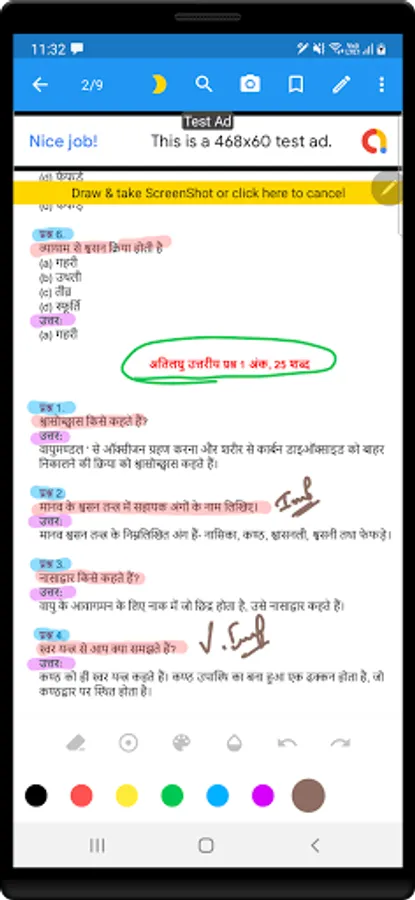 11:32
2/9
Test Ad
Nice job! This is a 468x60 test ad.
(d) फेफड़े
Draw & take ScreenShot or click here to cancel
प्रश्न 6.
व्यायाम से श्वसन क्रिया होती है
(a) गहरी
(b) उथली
(c) तीव्र
(d) स्फूर्ति
उत्तर:
(a) गहरी
अतिलघु उत्तरीय प्रश्न 1 अंक, 25 शब्द
प्रश्न 1.
श्वासोच्छ्वास किसे कहते हैं?
उत्तर:
वायुमण्डल ' से ऑक्सीजन ग्रहण करना और शरीर से कार्बन डाइऑक्साइड को बाहर
निकालने की क्रिया को श्वासोच्छ्वास कहते हैं।
प्रश्न 2
मानव के श्वसन तन्त्र में सहायक अंगों के नाम लिखिए। Imp
उत्तर:
मानव श्वसन तन्त्र के निम्नलिखित अंग हैं- नासिका, कण्ठ, श्वासनली, श्वसनी तथा फेफड़े।
प्रश्न 3.
नासाद्वार किसे कहते हैं?
उत्तर:
वायु के आवागमन के लिए नाक में जो छिद्र होता है, उसे नासाद्वार कहते हैं।
प्रश्न 4.
स्वर यन्त्र से आप क्या समझते हैं? V. Imp
उत्तर:
कण्ठ को ही स्वर यन्त्र कहते हैं। कण्ठ उपास्थि का बना हुआ एक ढक्कन होता है, जो
कण्ठद्वार पर स्थित होता है।